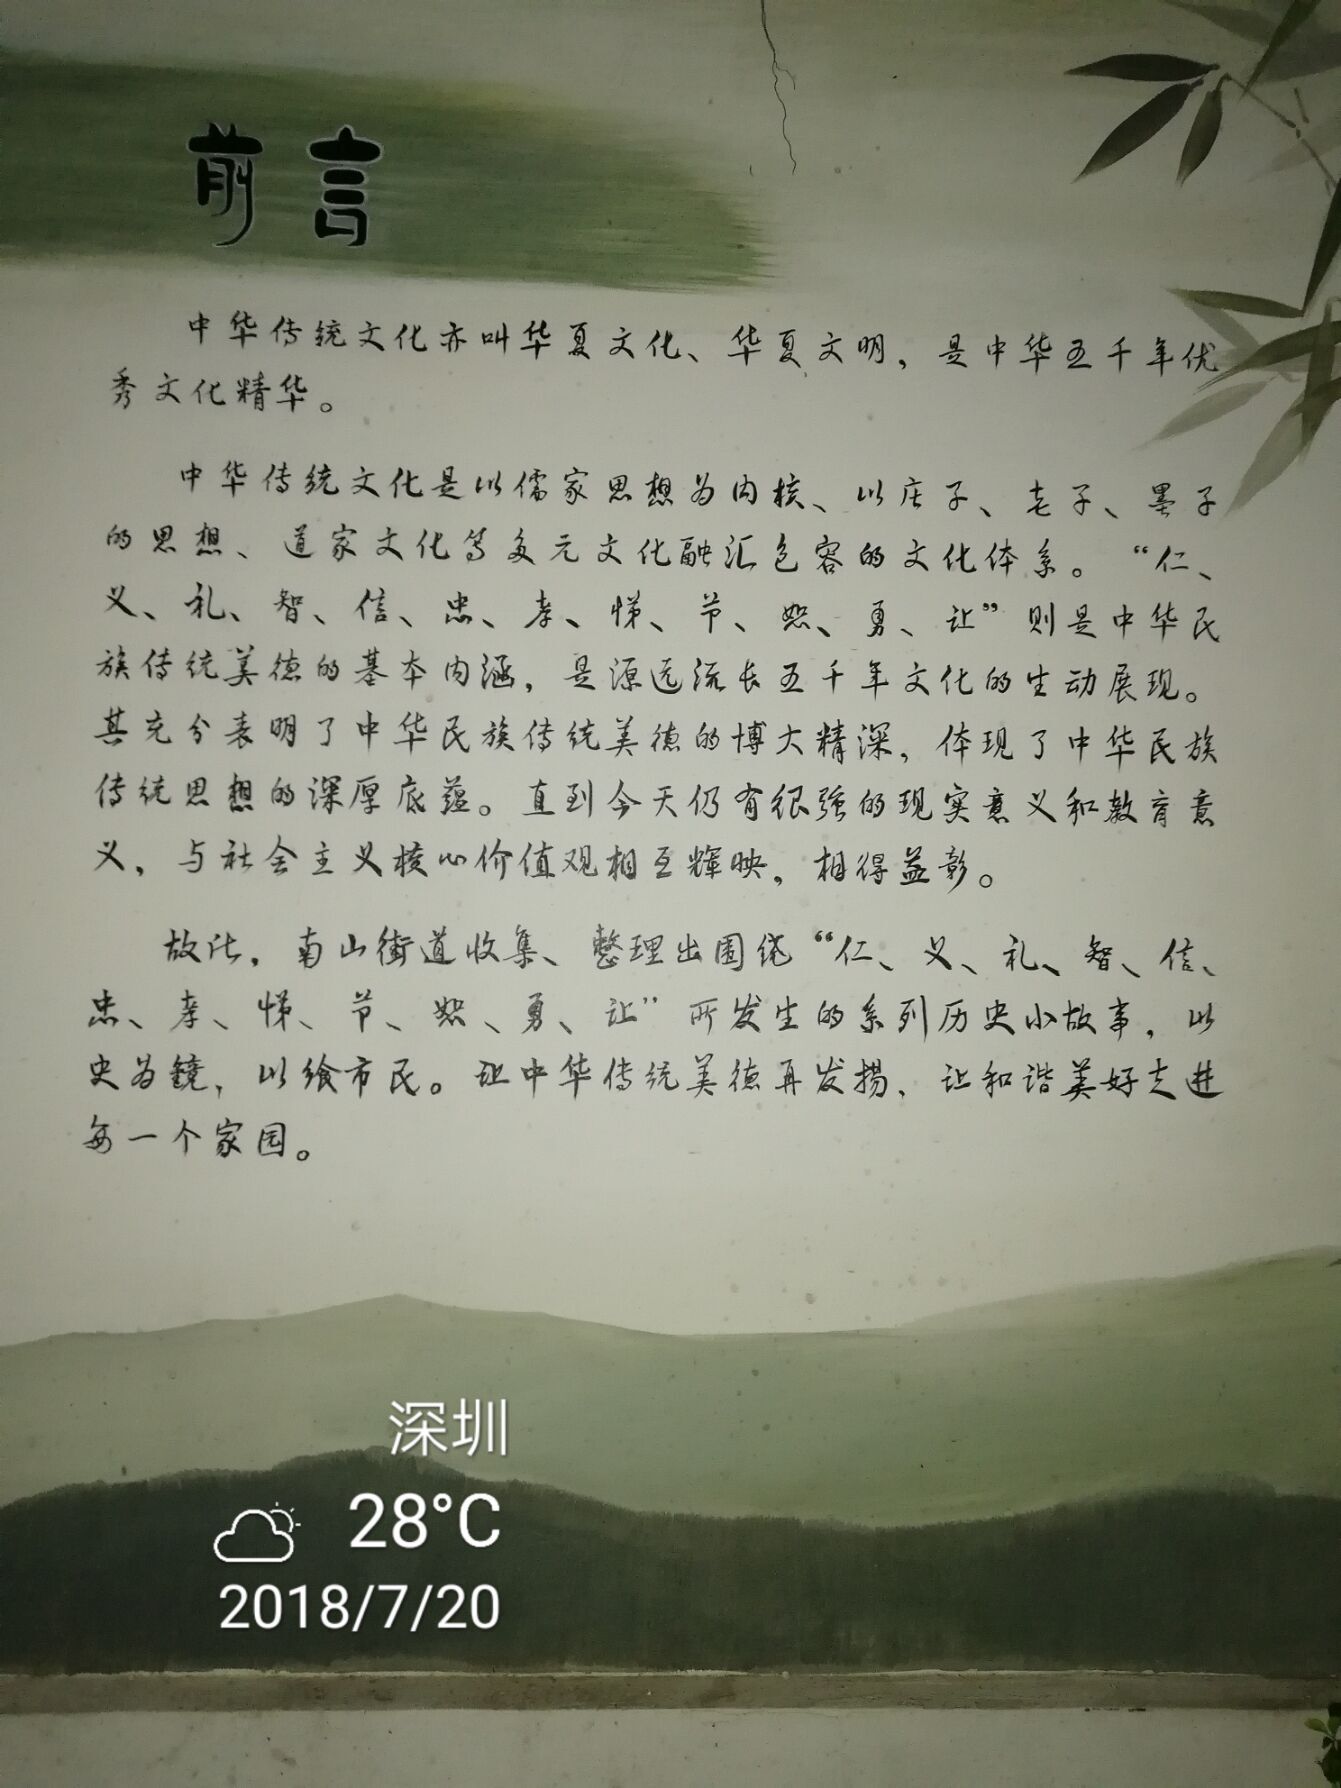 前言
中华传统文化亦叫华夏文化、华夏文明，是中华五千年优
秀文化精华。
中华传统文化是以儒家思想为内核、以庄子、老子、墨子
的思想、道家文化等多元文化融汇包容的文化体系。“仁、
义、礼、智、信、忠、孝、悌、节、恕、勇、让”则是中华民
族传统美德的基本内涵，是源远流长五千年文化的生动展现。
其充分表明了中华民族传统美德的博大精深，体现了中华民族
传统思想的深厚底蕴。直到今天仍有很强的现实意义和教育意
义，与社会主义核心价值观相互辉映，相得益彰。
故此，南山街道收集、整理出围绕“仁、义、礼、智、信、
忠、孝、悌、节、恕、勇、让”所发生的系列历史小故事，以
史为镜，以飨市民。让中华传统美德再发扬，让和谐美好走进
每一个家园。
深圳
28°C
2018/7/20